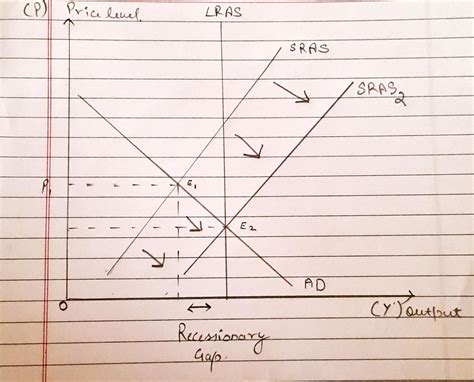 (P) Price level
LRAS
SRAS
SRAS2
P1
E1
E2
AD
0
(Y) Output
Recessionary
Gap.